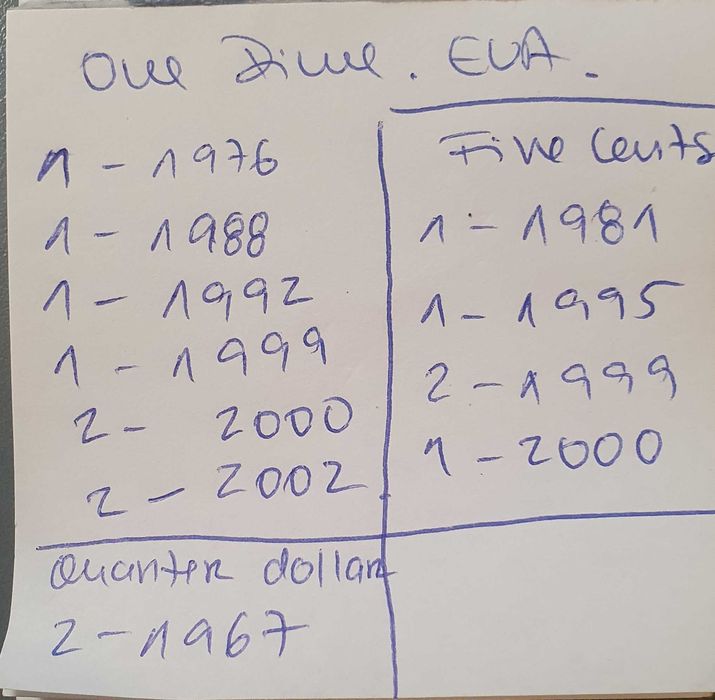 One Dime. EUA.
1 - 1976
1 - 1988
1 - 1992
1 - 1999
2 - 2000
2 - 2002
Five Cents
1 - 1981
1 - 1995
2 - 1999
1 - 2000
Quarter dollar
2 - 1967